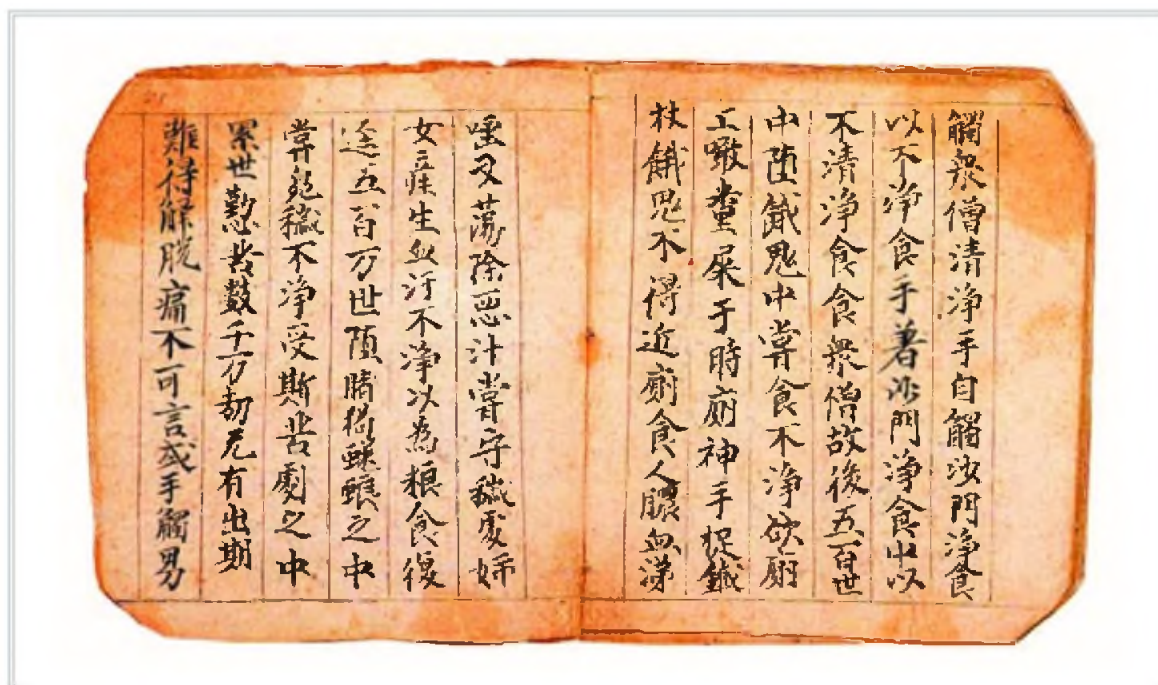 觸衆僧清淨手自觸沙門淨食
以不淨食手著沙門淨食中以
不清淨食食衆僧故後五百世
中墮餓鬼中常食不淨欲廁
上噉糞屎于時廁神手捉鐵
杖餓鬼不得近廁食人膿血涕
唾及蕩除惡汁常守穢處婦
女產生血汙不淨以為粮食復
逕五百万世墮猪狗蜣蜋之中
常苑穢不淨受斯苦劇之中
累世懃苦數千万劫无有出期
難得解脫痛不可言或手觸男